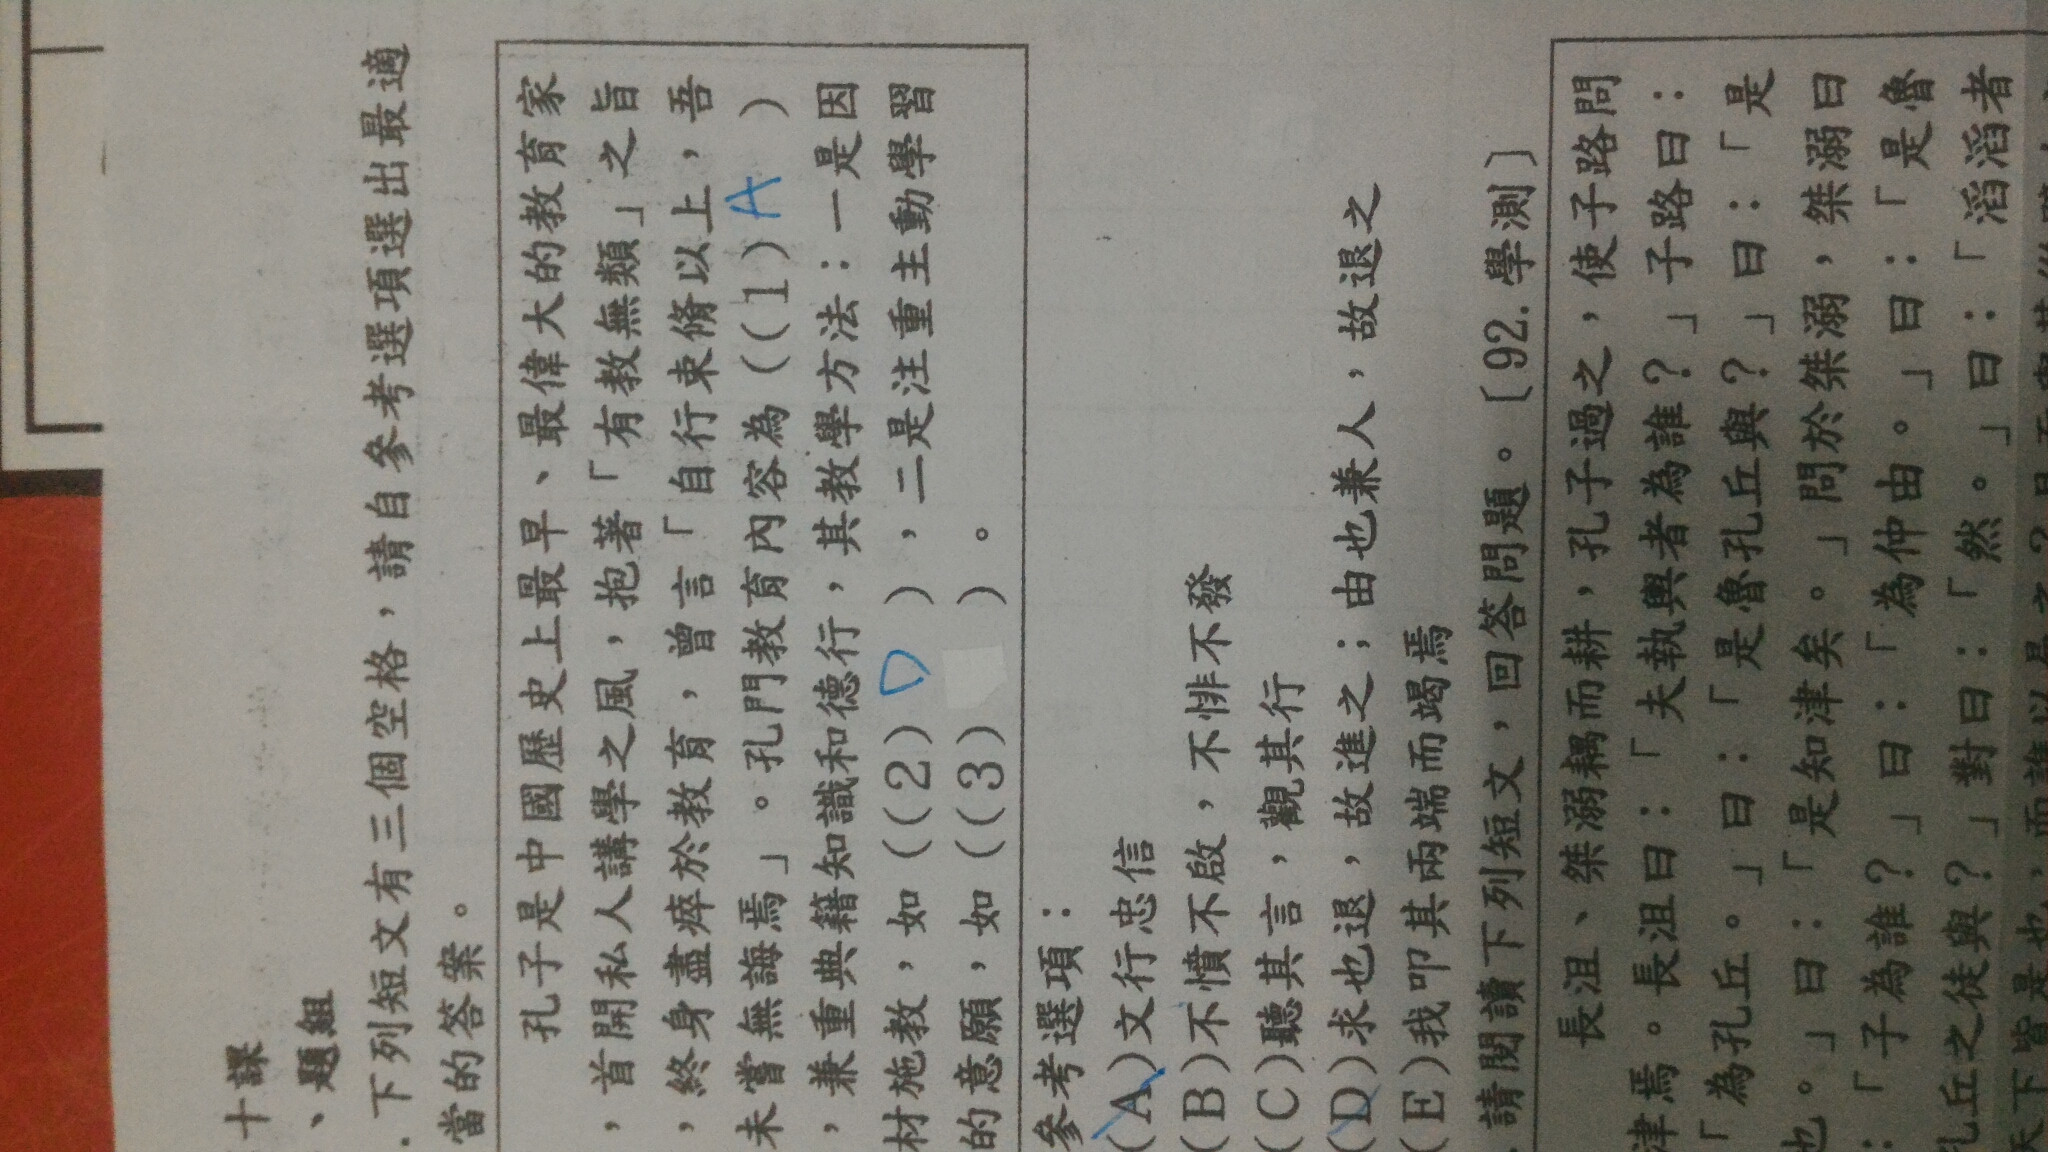 十課
、題組
．下列短文有三個空格，請自參考選項選出最適
當的答案。
孔子是中國歷史上最早、最偉大的教育家
，首開私人講學之風，抱著「有教無類」之旨
，終身盡瘁於教育，曾言「自行束脩以上，吾
未嘗無誨焉」。孔門教育內容為（(1) A ）
，兼重典籍知識和德行，其教學方法：一是因
材施教，如（(2) D ），二是注重主動學習
的意願，如（(3) ）。
參考選項：
(A)文行忠信
(B)不憤不啟，不悱不發
(C)聽其言，觀其行
(D)求也退，故進之；由也兼人，故退之
(E)我叩其兩端而竭焉
．請閱讀下列短文，回答問題。〔92.學測〕
長沮、桀溺耦而耕，孔子過之，使子路問
津焉。長沮曰：「夫執輿者為誰？」子路曰：
「為孔丘。」曰：「是魯孔丘與？」曰：「是
也。」曰：「是知津矣。」問於桀溺，桀溺曰
：「子為誰？」曰：「為仲由。」曰：「是魯
孔丘之徒與？」對曰：「然。」曰：「滔滔者
天下皆是也，而誰以易之？